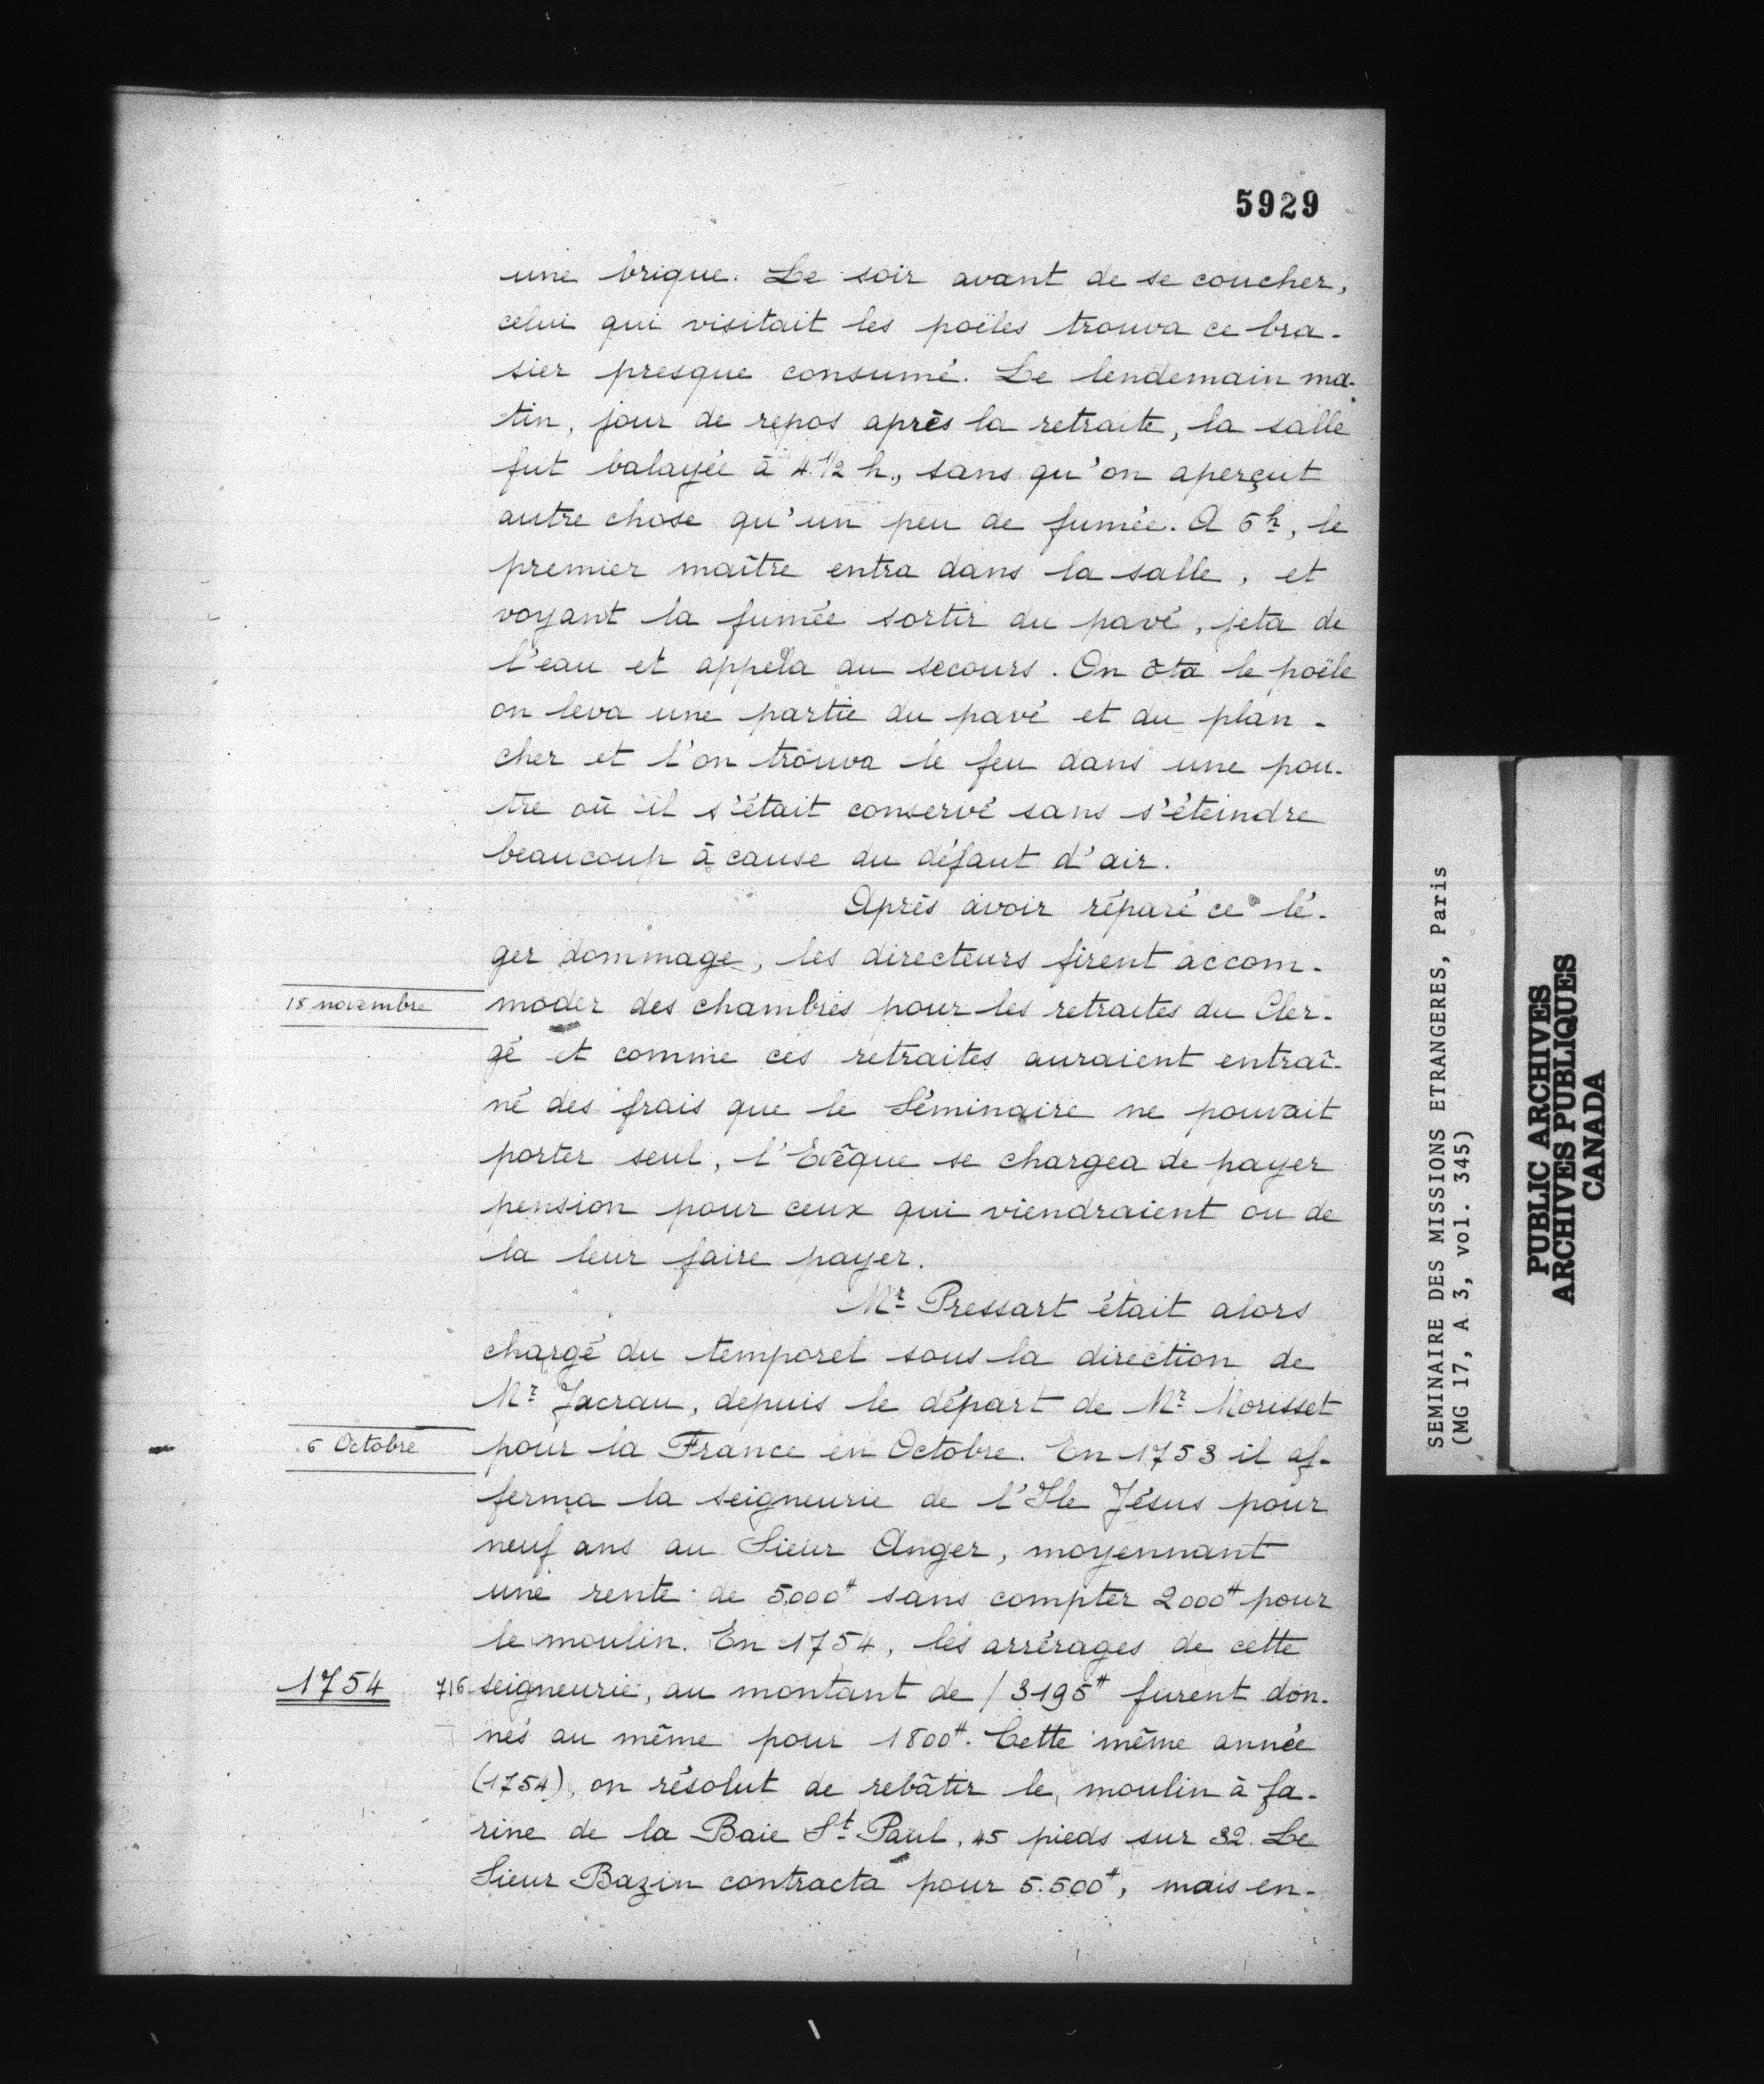 5929
une brique. Le soir avant de se coucher,
celui qui visitait les poëles trouva ce bra-
sier presque consumé. Le lendemain ma-
tin, jour de repos après la retraite, la salle
fut balayée à 4 1/2 h., sans qu'on aperçut
autre chose qu'un peu de fumée. A 6h, le
premier maître entra dans la salle, et
voyant la fumée sortir du pavé, jeta de
l'eau et appela du secours. On ôta le poële
on leva une partie du pavé et du plan-
cher et l'on trouva le feu dans une pou-
tre où il s'était conservé sans s'éteindre
beaucoup à cause du défaut d'air.
Après avoir réparé ce lé-
ger dommage, les directeurs firent accom-
18 novembre
moder des chambres pour les retraites du Cler-
gé et comme ces retraites auraient entraî-
né des frais que le Séminaire ne pouvait
porter seul, l'Evêque se chargea de payer
pension pour ceux qui viendraient ou de
la leur faire payer.
Mr Pressart était alors
chargé du temporel sous la direction de
Mr Jacrau, depuis le départ de Mr Morisset
6 Octobre
pour la France en Octobre. En 1753 il af-
ferma la seigneurie de l'Ile Jésus pour
neuf ans au Sieur Anger, moyennant
une rente de 5000# sans compter 2000# pour
le moulin. En 1754, les arrérages de cette
1754
716 seigneurie, au montant de / 3195# furent don-
nés au même pour 1800#. Cette même année
(1754), on résolut de rebâtir le moulin à fa-
rine de la Baie St Paul, 45 pieds sur 32. Le
Sieur Bazin contracta pour 5.500#, mais en-
SEMINAIRE DES MISSIONS ETRANGERES, Paris
(MG 17, A 3, vol. 345)
PUBLIC ARCHIVES
ARCHIVES PUBLIQUES
CANADA